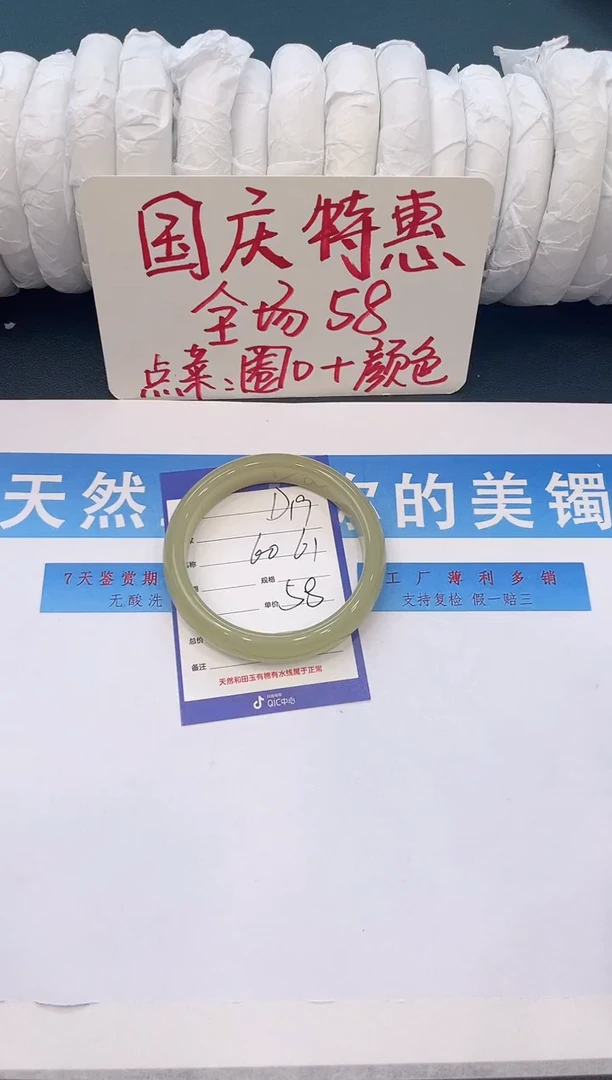 国庆特惠
全场58
点菜:圈口+颜色
天然 的美镯
7天鉴赏期 工厂薄利多销
无酸洗 支持复检 假一赔三
D19
称 60 61
规格
单价 58
总价
备注
天然和田玉有棉有水线属于正常
QIC中心